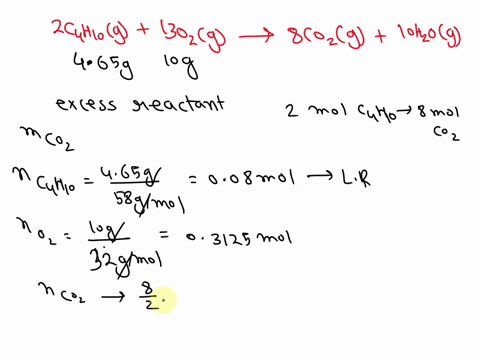 2C₄H₁₀(g) + 13O₂(g) → 8CO₂(g) + 10H₂O(g)
4.65g 10g
excess reactant
2 mol C₄H₁₀ → 8 mol CO₂
m CO₂
n C₄H₁₀ = 4.65g / 58g/mol = 0.08 mol → L.R
n O₂ = 10g / 32g/mol = 0.3125 mol
n CO₂ → 8/2 .